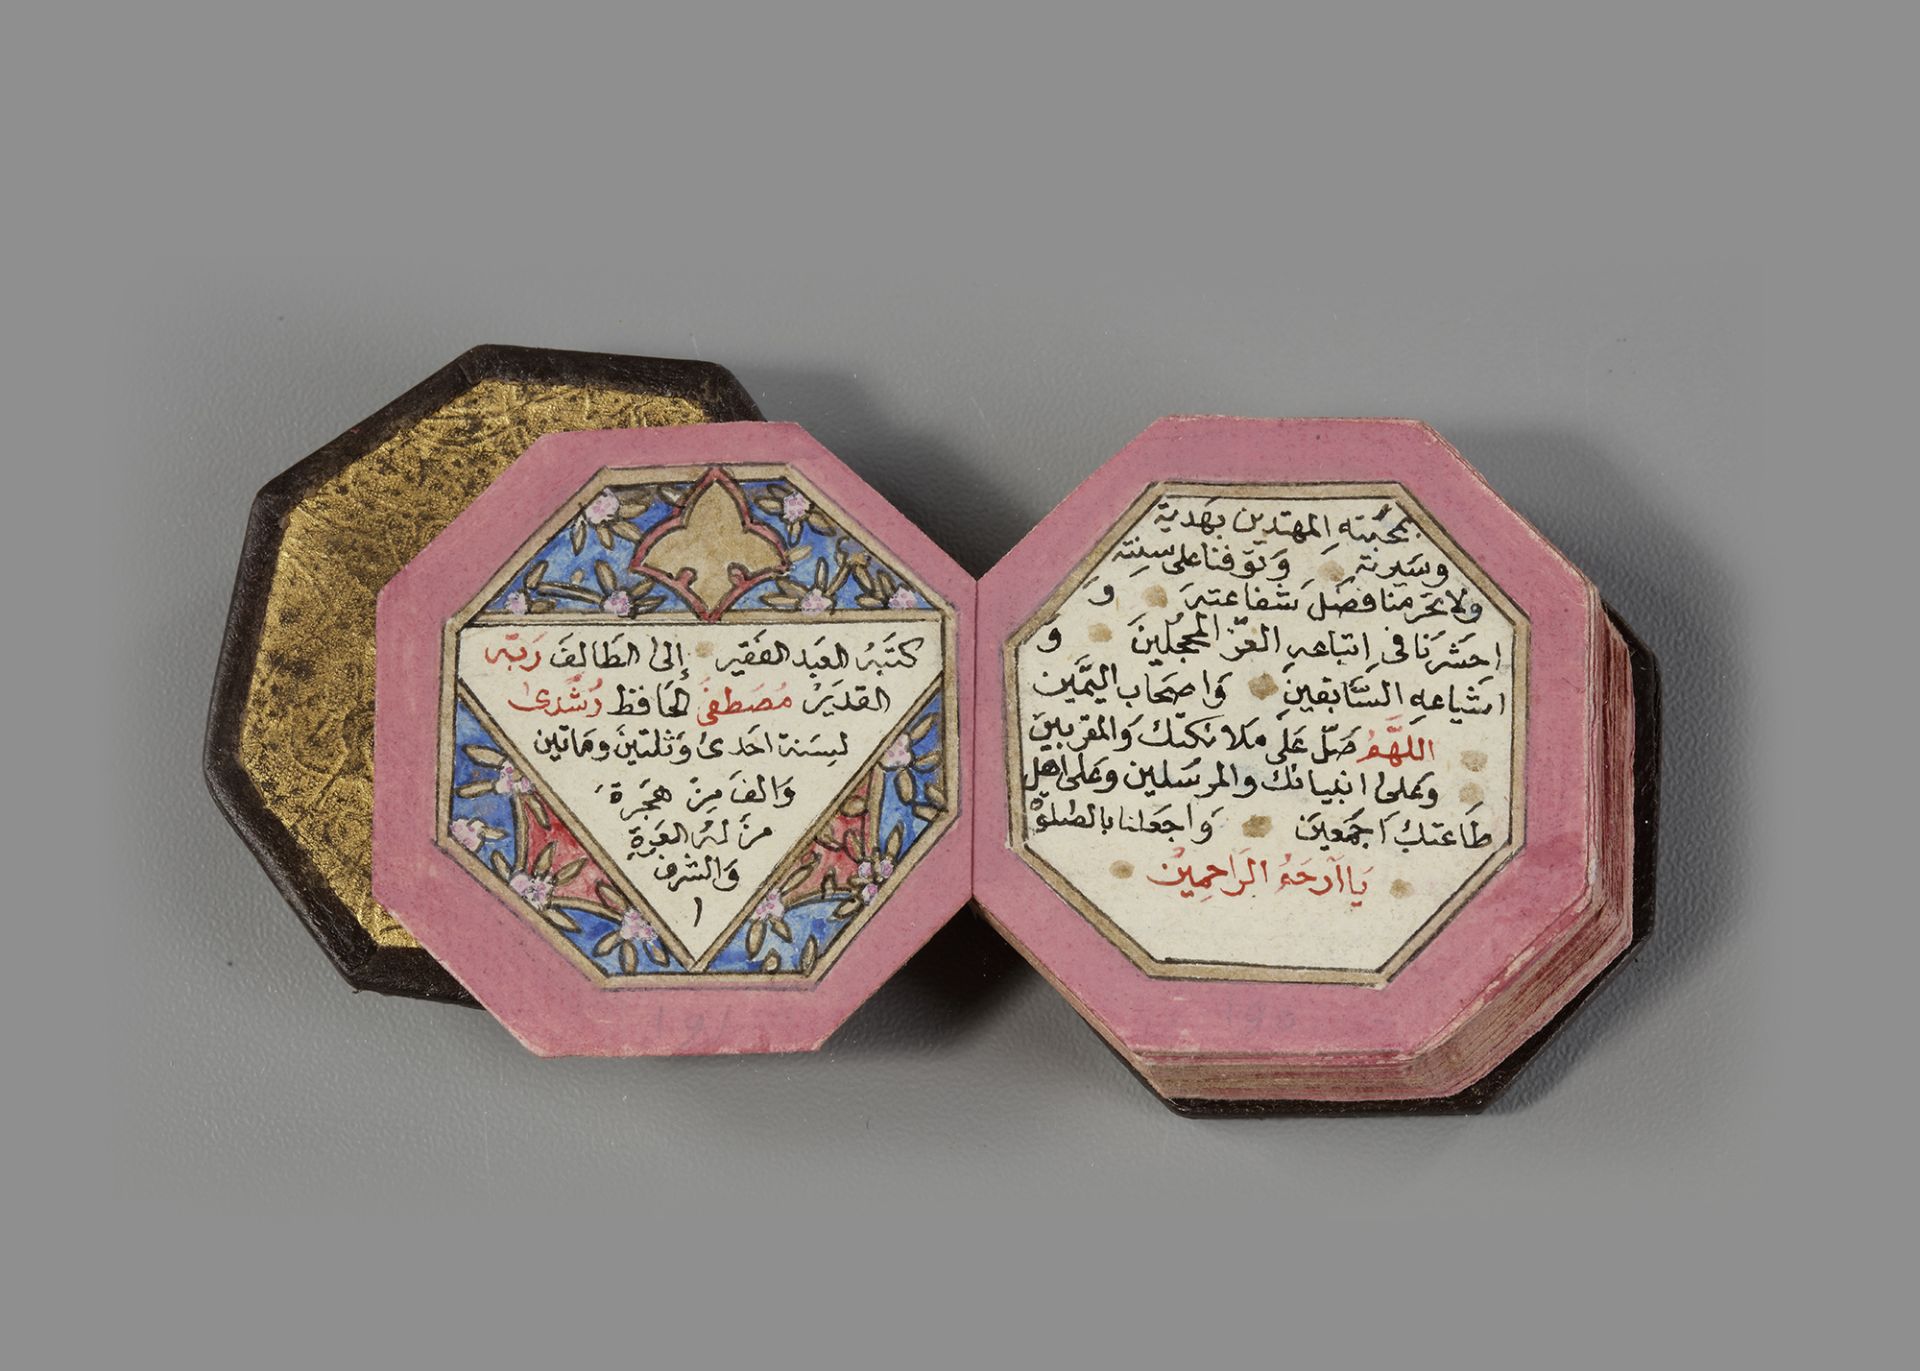 بمحبته المهتدين بهدية
وسيرته وتوفنا على سنته
ولا تحرمنا فضل شفاعته و
احشرنا في اتباعه الغر المحجلين و
اشياعه السابقين واصحاب اليمين
اللهم صل على ملائكتك والمقربين
وعلى انبيائك والمرسلين وعلى اهل
طاعتك اجمعين واجعلنا بالصلوة
يا ارحم الراحمين
كتبه العبد الفقير إلى الطاف ربه
القدير مصطفى الحافظ رشدى
لسنة احدى وثلثين ومأتين
والف من هجرة
من له العزة
والشرف